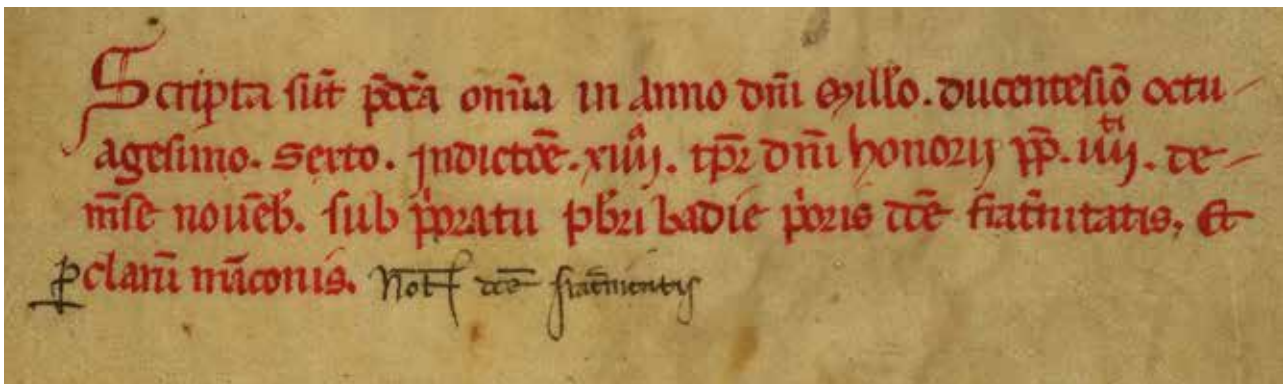 Scripta sūt p̄dc̄a om̄ia in Anno dn̄i Millō. ducentesiō octu
agesimo. Sexto. Jndictōe. xiiij. tp̄r dn̄i honorij pp̄. iiijti. de
m̄se novēb̄. sub p̄oratu pb̄ri badie p̄oris dc̄e frat̄nitatis. Et
ꝑ clarū māconis. Not dc̄e frat̄nitatis